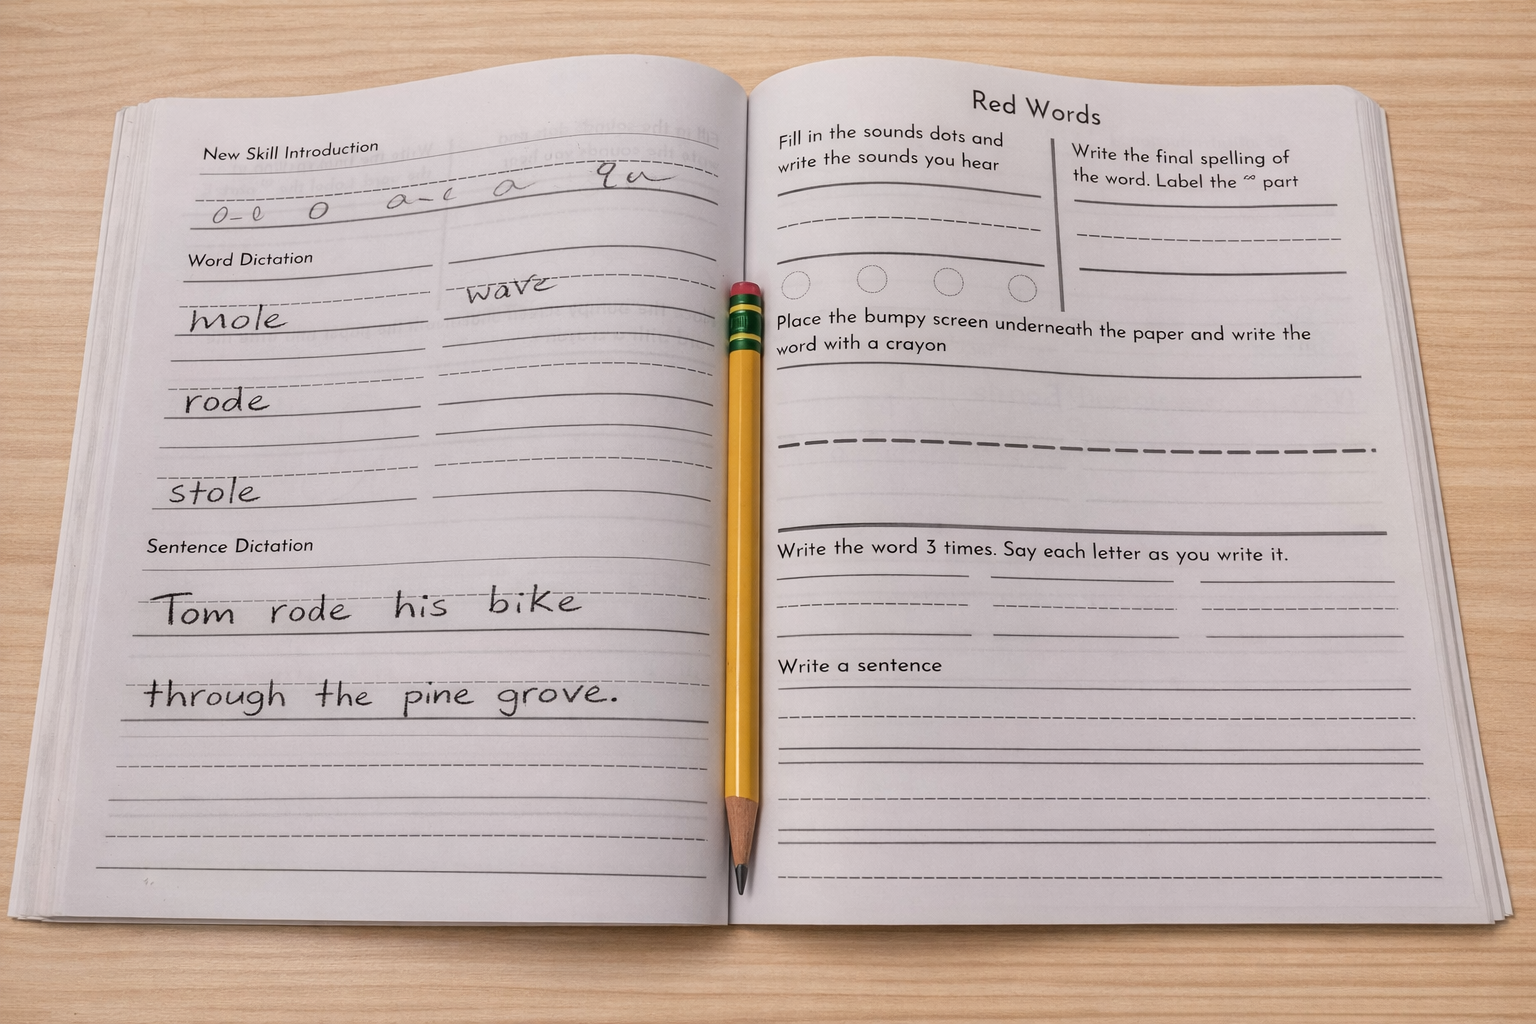 New Skill Introduction
o-e o a-e a qu
Word Dictation
mole
wave
rode
stole
Sentence Dictation
Tom rode his bike
through the pine grove.
Red Words
Fill in the sounds dots and
write the sounds you hear
Write the final spelling of
the word. Label the ∞ part
Place the bumpy screen underneath the paper and write the
word with a crayon
Write the word 3 times. Say each letter as you write it.
Write a sentence